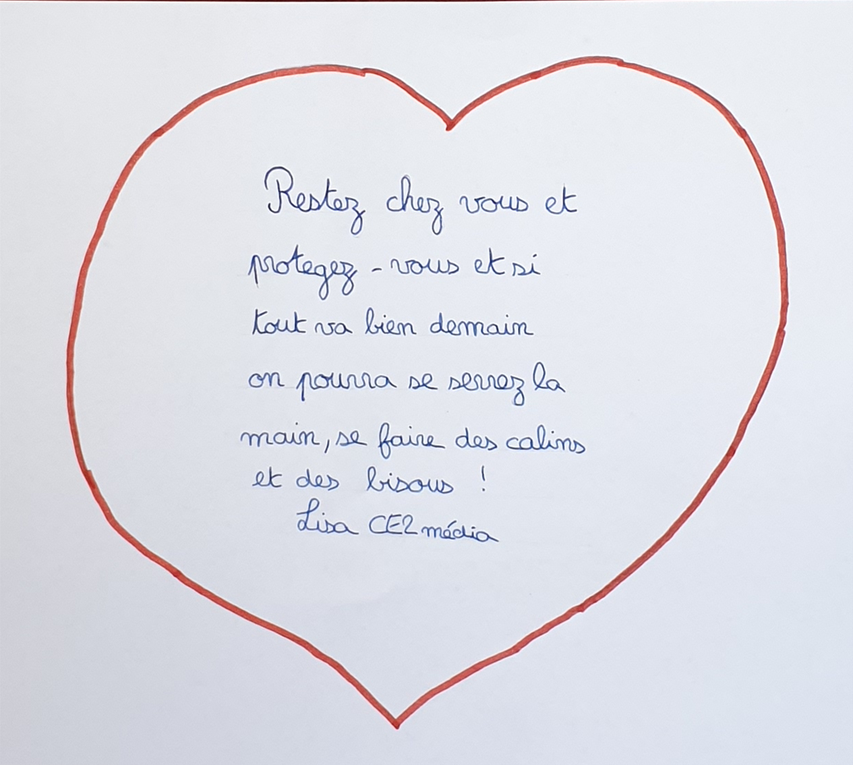 Restez chez vous et
protegez-vous et si
tout va bien demain
on pourra se serrez la
main, se faire des calins
et des bisous !
Lisa CE2 média